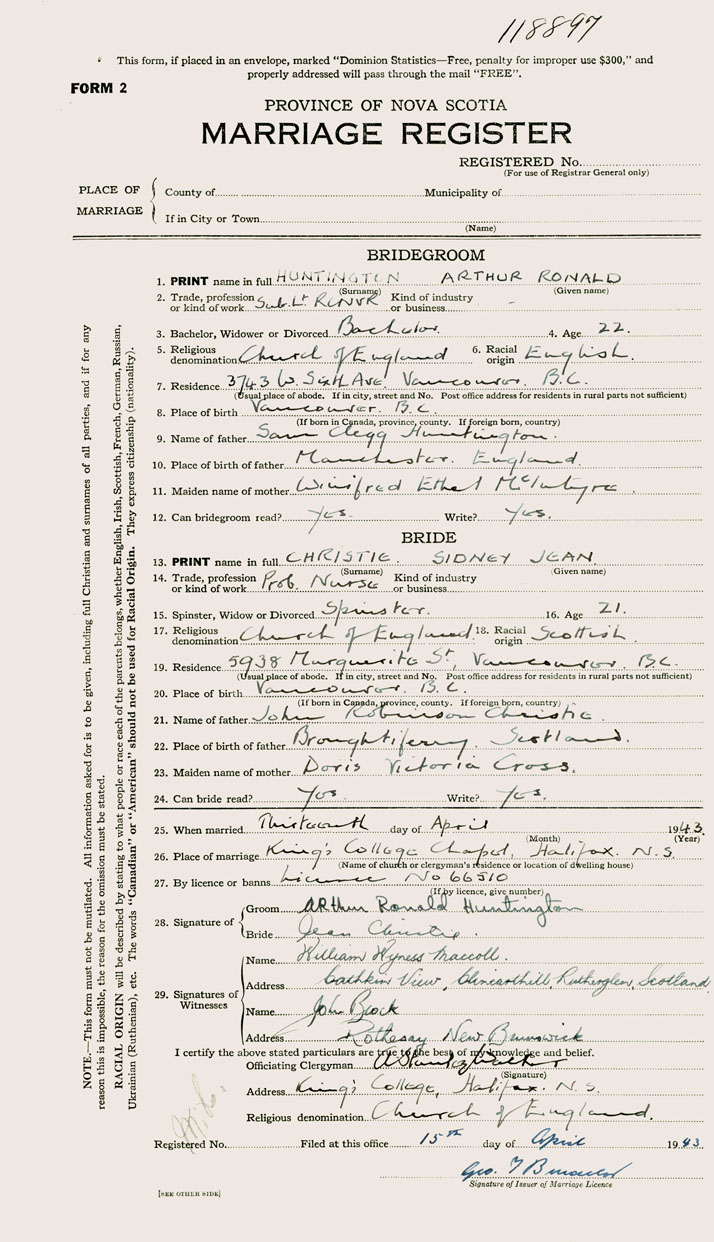 118897
This form, if placed in an envelope, marked "Dominion Statistics—Free, penalty for improper use $300," and
properly addressed will pass through the mail "FREE".
FORM 2
PROVINCE OF NOVA SCOTIA
MARRIAGE REGISTER
REGISTERED No.
(For use of Registrar General only)
PLACE OF MARRIAGE
County of Municipality of
If in City or Town
(Name)
BRIDEGROOM
1. PRINT name in full HUNTINGTON ARTHUR RONALD
(Surname) (Given name)
2. Trade, profession or kind of work Sub. Lt RCNVR Kind of industry or business -
3. Bachelor, Widower or Divorced Bachelor. 4. Age 22.
5. Religious denomination Church of England 6. Racial origin English.
7. Residence 3743 W. Sixth Ave, Vancouver. B.C.
(Usual place of abode. If in city, street and No. Post office address for residents in rural parts not sufficient)
8. Place of birth Vancouver. B.C.
(If born in Canada, province, county. If foreign born, country)
9. Name of father Sam Clegg Huntington.
10. Place of birth of father Manchester. England.
11. Maiden name of mother Winifred Ethel McIntyre.
12. Can bridegroom read? Yes. Write? Yes.
BRIDE
13. PRINT name in full CHRISTIE. SIDNEY JEAN.
(Surname) (Given name)
14. Trade, profession or kind of work Prob. Nurse Kind of industry or business
15. Spinster, Widow or Divorced Spinster. 16. Age 21.
17. Religious denomination Church of England. 18. Racial origin Scottish.
19. Residence 5938 Marguerite St, Vancouver. B.C.
(Usual place of abode. If in city, street and No. Post office address for residents in rural parts not sufficient)
20. Place of birth Vancouver. B.C.
(If born in Canada, province, county. If foreign born, country)
21. Name of father John Robinson Christie.
22. Place of birth of father Broughtiferry. Scotland.
23. Maiden name of mother Doris Victoria Cross.
24. Can bride read? Yes. Write? Yes.
25. When married Thirteenth day of April 1943.
(Month) (Year)
26. Place of marriage King's College Chapel, Halifax. N.S.
(Name of church or clergyman's residence or location of dwelling house)
27. By licence or banns Licence No 66510
(If by licence, give number)
28. Signature of
Groom Arthur Ronald Huntington
Bride Jean Christie.
29. Signatures of Witnesses
Name William Wyness Maccoll.
Address Cathkin View, Rutherglen, Scotland
Name John Brock
Address Rothesay New Brunswick
I certify the above stated particulars are true to the best of my knowledge and belief.
Officiating Clergyman
(Signature)
Address King's College, Halifax. N.S.
Religious denomination Church of England.
Registered No. Filed at this office 15th day of April 1943
Geo.
Signature of Issuer of Marriage Licence
[SEE OTHER SIDE]
NOTE.—This form must not be mutilated. All information asked for is to be given, including full Christian and surnames of all parties, and if for any
reason this is impossible, the reason for the omission must be stated.
RACIAL ORIGIN will be described by stating to what people or race each of the parents belongs, whether English, Irish, Scottish, French, German, Russian,
Ukrainian (Ruthenian), etc. The words "Canadian" or "American" should not be used for Racial Origin. They express citizenship (nationality).